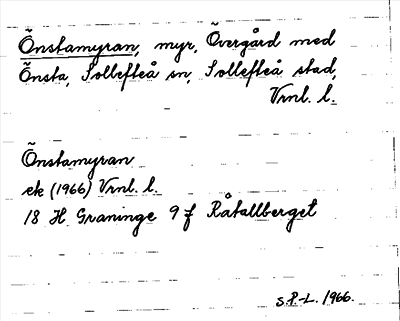 Önstamyran, myr, Övergård med
Önsta, Sollefteå sn, Sollefteå stad,
Vrnl. l.
Önstamyran
ek (1966) Vrnl. l.
18 H Graninge 9 f Råtallberget
S.P-L. 1966.